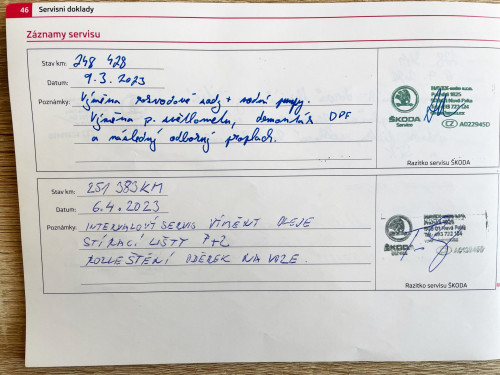 46 Servisní doklady
Záznamy servisu
Stav km: 248 428
Datum: 9.3.2023
Poznámky: Výměna rozvodové sady + vodní pumpy.
Výměna p. světlometu, demontáž DPF
a následný odborný proplach.
ŠKODA
Service
CZ
Razítko servisu ŠKODA
Stav km: 251 383 KM
Datum: 6.4.2023
Poznámky: INTERVALOVÝ SERVIS VÍMĚNY OLEJE
STÍRACÍ LIŠTY P+Z
ROZLEŠTĚNÍ ODĚREK NA VOZE.
ŠKODA
Razítko servisu ŠKODA